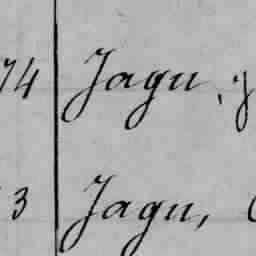 74 Jagu, y
3 Jagu,